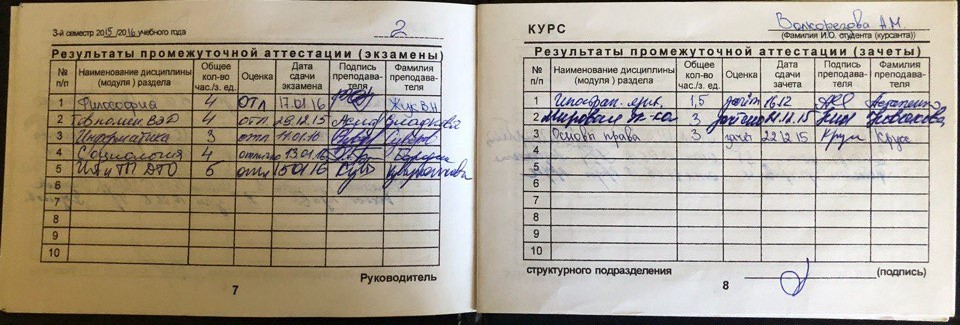 3-й семестр 2015/2016 учебного года 2
Результаты промежуточной аттестации (экзамены)
№ п/п Наименование дисциплины (модуля) раздела Общее кол-во час./з. ед. Оценка Дата сдачи экзамена Подпись преподава-теля Фамилия преподава-теля
1 Философия 4 отл 17.01.16 Жук В.Н.
2 4 отл 29.12.15
3 Информатика 3 отл 11.01.16
4 Социология 4 отлично 13.01.16
5 5 отл 15.01.16
6
7
8
9
10
Руководитель
7
КУРС Волкорезова А.М.
(Фамилия И.О. студента (курсанта))
Результаты промежуточной аттестации (зачеты)
№ п/п Наименование дисциплины (модуля) раздела Общее кол-во час./з. ед. Оценка Дата сдачи зачета Подпись преподава-теля Фамилия преподава-теля
1 Иностран. язык 1,5 зачёт 16.12
2 Мировая эк-ка 3 зачтено 21.12.15
3 Основы права 3 зачёт 22.12.15
4
5
6
7
8
9
10
структурного подразделения (подпись)
8